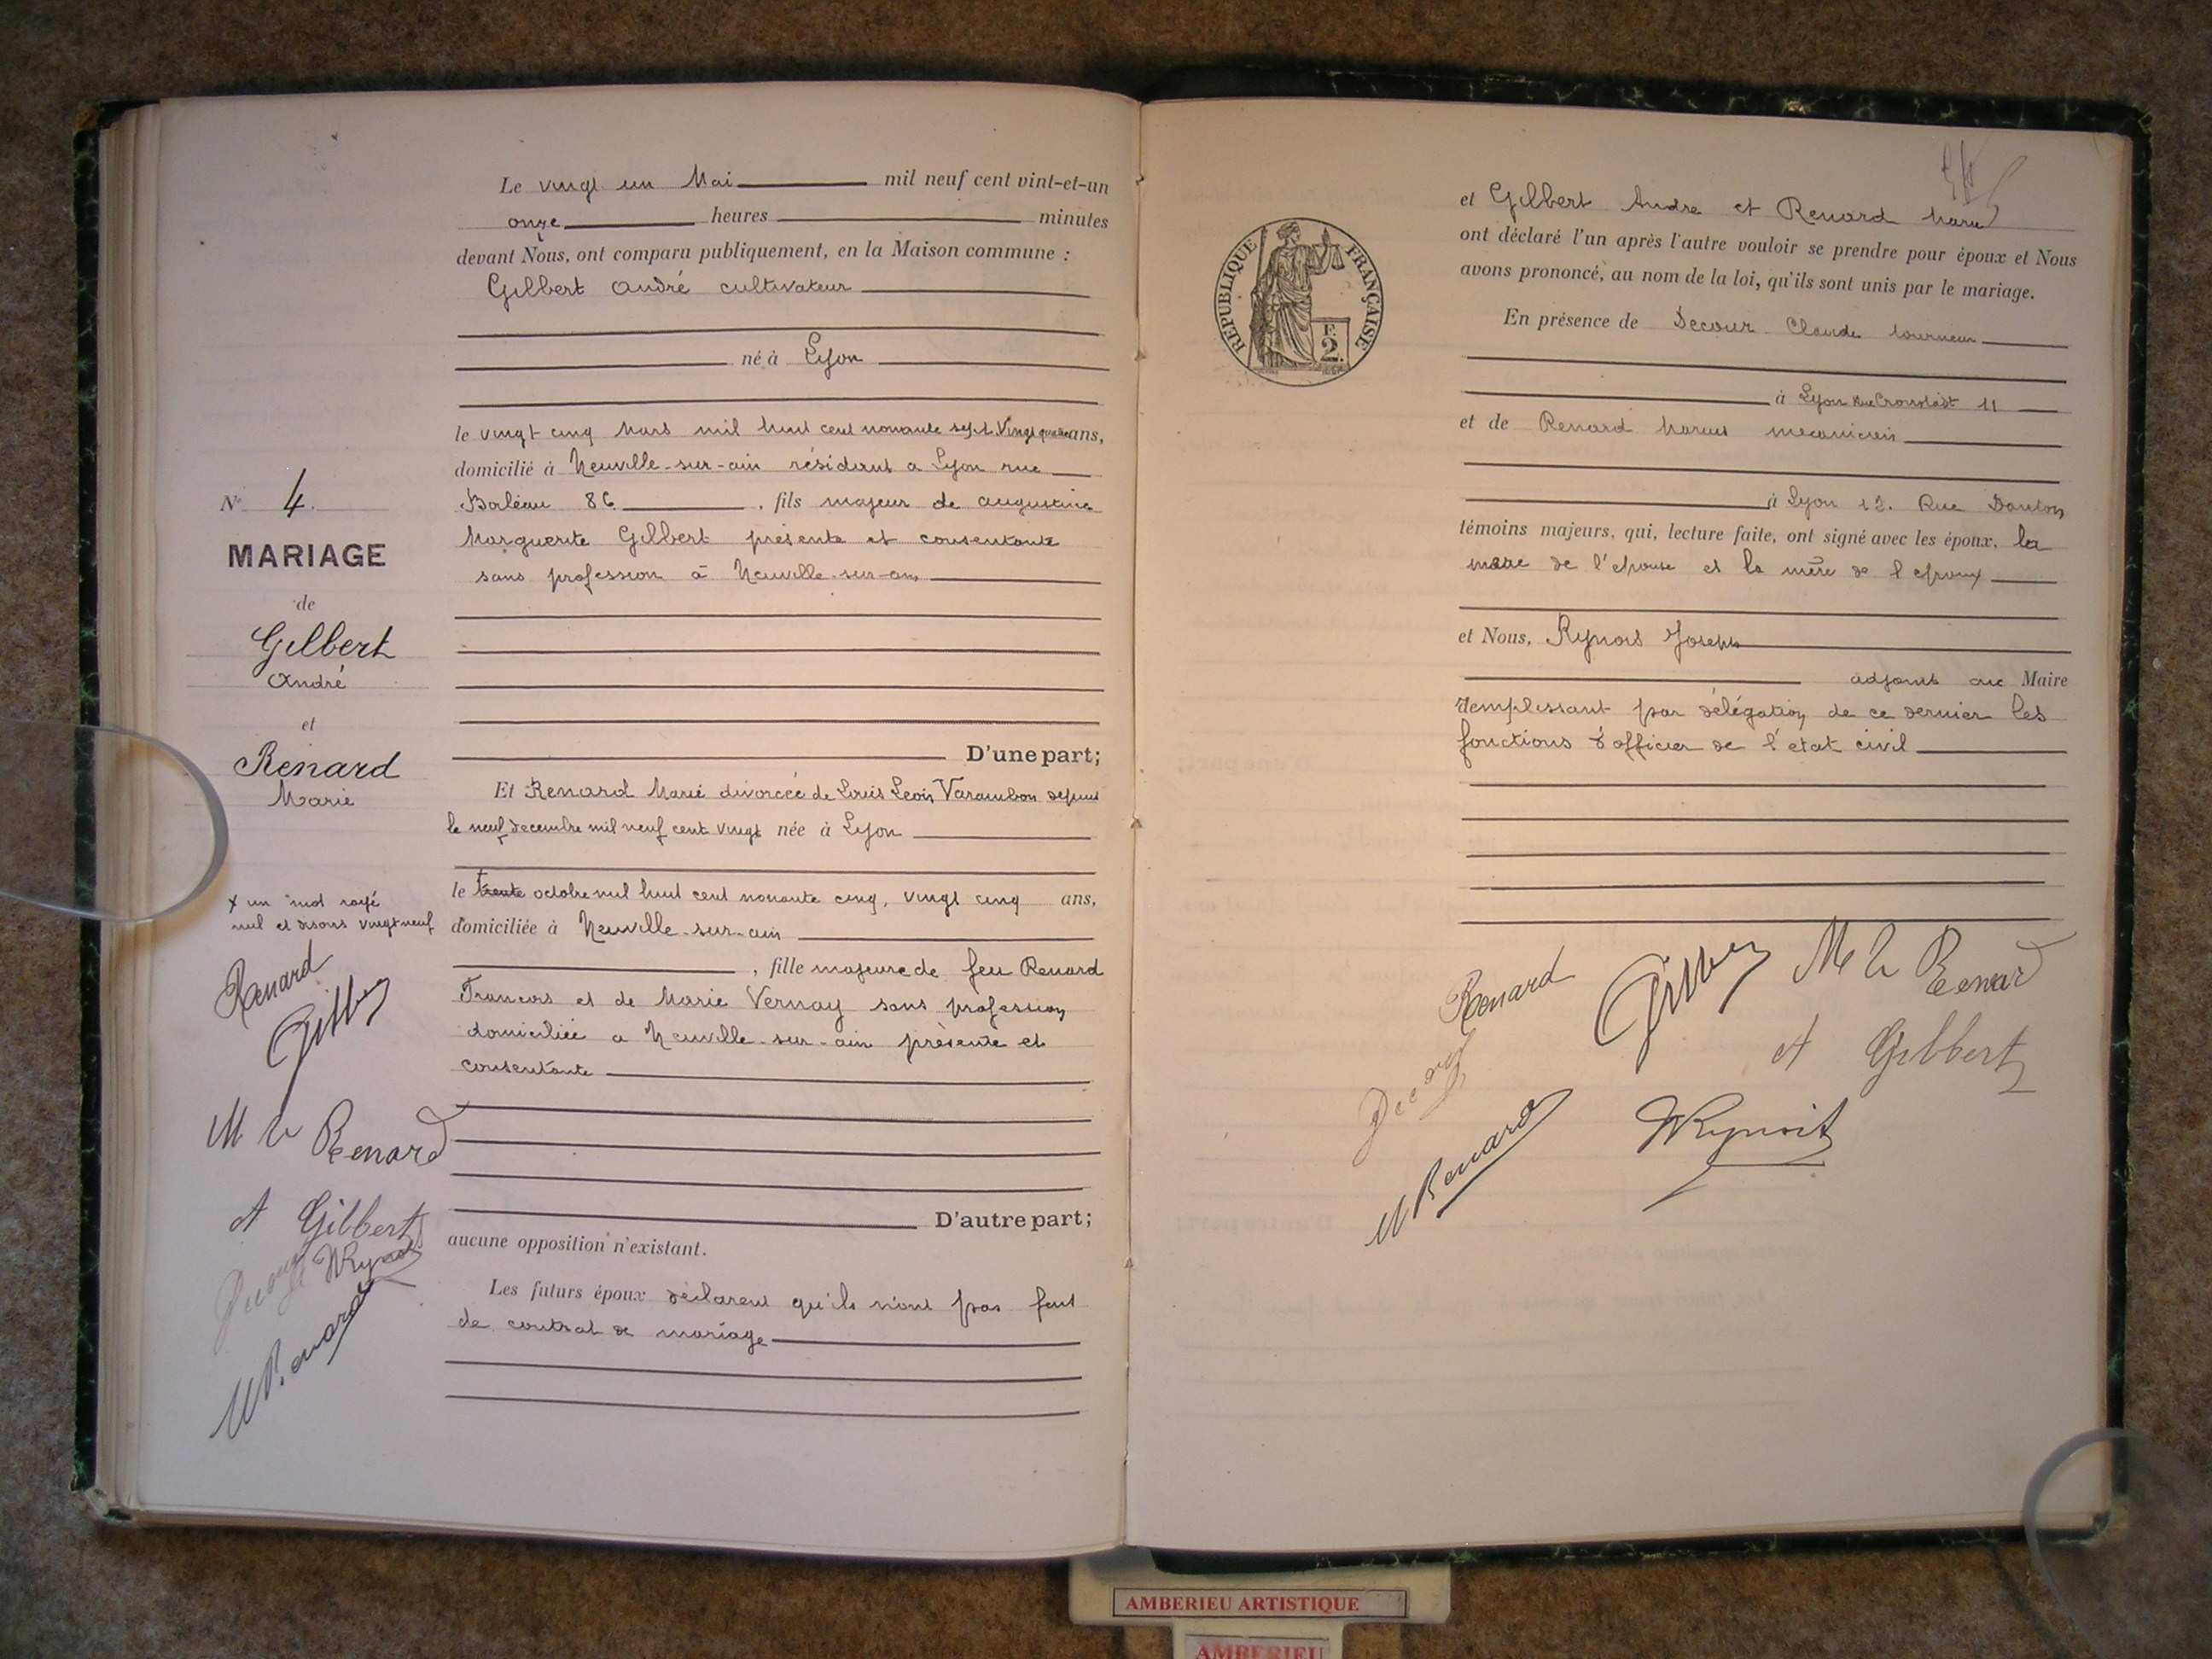 Le vingt un Mai mil neuf cent vint-et-un
onze heures minutes
devant Nous, ont comparu publiquement, en la Maison commune :
Gilbert andré cultivateur
né à Lyon
le vingt cinq Mars mil huit cent nonante sept. Vingt quatre ans,
domicilié à Neuville-sur-ain résidant a Lyon rue
Boileau 86, fils majeur de augustine
Marguerite Gilbert présente et consentante
sans profession à Neuville-sur-ain
D'une part;
Et Renard Marie divorcée de Louis Léon Varambon depuis
le neuf decembre mil neuf cent vingt née à Lyon
le trente octobre mil huit cent nonante cinq, vingt cinq ans,
domiciliée à Neuville-sur-ain
, fille majeure de feu Renard
Francois et de Marie Vernay sans profession
domiciliée a Neuville-sur-ain présente et
consentante
D'autre part;
aucune opposition n'existant.
Les futurs époux déclarent qu'ils n'ont pas fait
de contrat de mariage
N° 4.
MARIAGE
de
Gilbert
André
et
Renard
Marie
x un mot rayé
nul et disons vingt neuf
Renard
Gilbert
M Renard
A Gilbert
Decour
Rynois
M Renard
et Gilbert Andre et Renard Marie
ont déclaré l'un après l'autre vouloir se prendre pour époux et Nous
avons prononcé, au nom de la loi, qu'ils sont unis par le mariage.
En présence de Decour Claude tourneur
à Lyon Rue Cronstadt 11
et de Renard Marius mecanicien
à Lyon 12. Rue Danton
témoins majeurs, qui, lecture faite, ont signé avec les époux, la
mère de l'epouse et la mère de l'epoux
et Nous, Rynois Joseph
adjoint au Maire
remplissant par délégation de ce dernier les
fonctions d'officier de l'état civil
RÉPUBLIQUE FRANÇAISE
F.
2.
Renard
Gilbert
M Renard
A Gilbert
Decour
Rynois
M Renard
AMBERIEU ARTISTIQUE
AMBERIEU